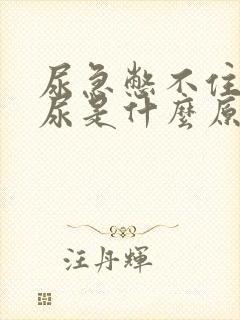 尿急憋不住
尿是什麼原
汪丹輝